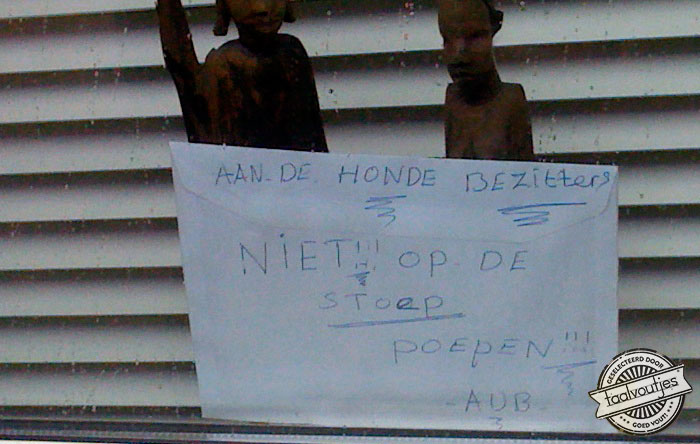 AAN-DE HONDE BEZitters
NIET!!! OP DE
STOEP
POEPEN!!!
-AUB-
GESELECTEERD DOOR
taalvoutjes
GOED VOUT!